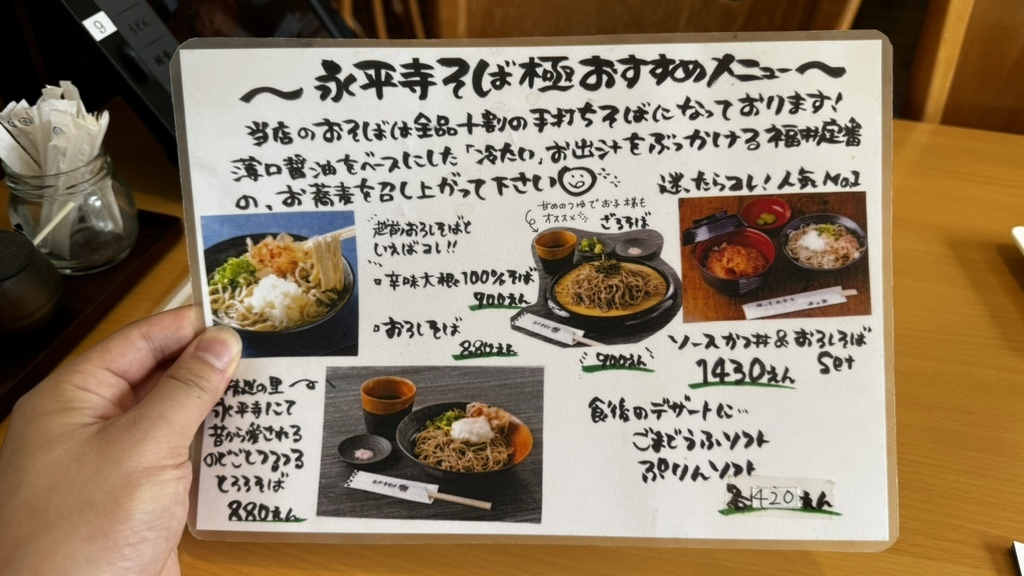 ～永平寺そば極おすすめメニュー～
当店のおそばは全品十割の手打ちそばになっております!
薄口醤油をベースにした「冷たい」お出汁をぶっかける福井定番
の、お蕎麦を召し上がって下さい
迷ったらコレ!人気No.1
越前おろしそばと
いえばコレ!!
・辛味大根100%そば
900えん
・おろしそば
880えん
甘めのつゆでお子様も
オススメ
ざるそば
900えん
ソースカツ丼&おろしそば
Set
1430えん
の里
永平寺にて
昔から愛される
のどごしつるつる
とろろそば
880えん
食後のデザートに…
ごまどうふソフト
ぷりんソフト
各420えん
9
うどん